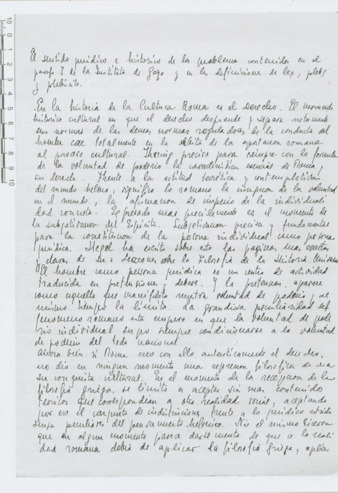 El sentido jurídico e histórico de los problemas contenidos en el
paragr. I de la Instituta de Gayo y en las definiciones de lex, plebs
y plebiscito.
En la historia de la Cultura Roma es el Derecho. El momento
histórico cultural en que el derecho desprende y separa
sus normas de las demás normas reguladoras de la conducta del
hombre cae totalmente en la órbita de la aportación romana
al proceso cultural. Ihering precisó para siempre con la fórmula
de la voluntad de poderío la característica esencial de Roma
en derecho. Frente a la actitud teorética y contemplativa
del mundo heleno, significa lo romano la irrupción de la voluntad
en el mundo, la afirmación de imperio de la individualidad
concreta. Expresado más precisamente es el momento de
la subjetivación del Espíritu. Subjetivación precisa y fundamental
para la constitución de la persona individual como persona
jurídica. Hegel ha escrito sobre esto las páginas más
y claras de sus Lecciones sobre la Filosofía de la Historia Universal
El hombre como persona jurídica es un centro de actividad
traducida en pretensiones y deberes. Y la pretensión, aparece
como aquello que manifiesta mejor voluntad de poderío, al
mismo tiempo la limita. La grandiosa peculiaridad del
fenómeno romano está en que la voluntad de poderío
individual, siempre condicionarse a la voluntad
de poderío del todo nacional
Ahora bien si Roma creó con ello auténticamente el derecho,
no dio en ningún momento una expresión filosófica de
su conquista cultural. En el momento de la recepción de la
filosofía griega, se limitó a aceptar sin más contenidos
teóricos que correspondían a otra realidad social, aceptando
por eso el conjunto de indistinciones frente a lo jurídico
peculiares del pensamiento helénico. Ni el mismo Cicerón
que en algún momento parece darse cuenta de que a la realidad
romana debía de aplicar la filosofía griega,